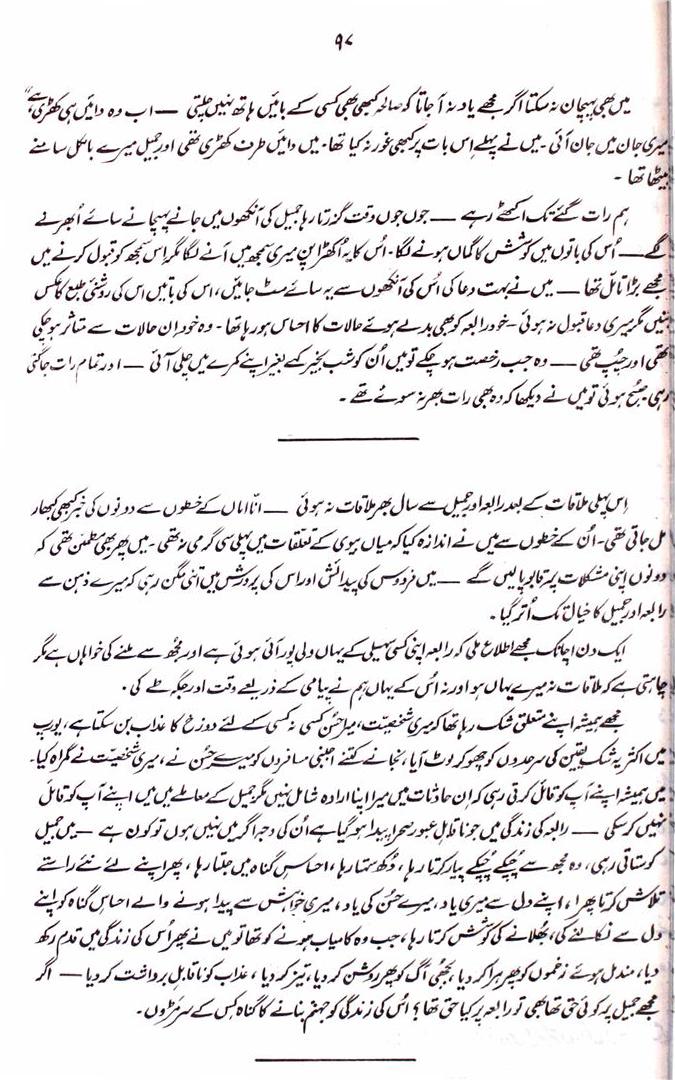 ۹۷
میں بھی پہچان نہ سکتا اگر مجھے یاد نہ آ جاتا کہ صالحہ کبھی بھی کسی کے بائیں ہاتھ نہیں چلیتی — اب وہ دائیں ہی کھڑی ہے"
میری جان میں جان آئی ۔ میں نے پہلے اس بات پر کبھی غور نہ کیا تھا۔ میں دائیں طرف کھڑی تھی اور جمیل میرے بالکل سامنے
بیٹھا تھا ۔
ہم رات گئے تک اکھٹے رہے — جوں جوں وقت گزرتا رہا جمیل کی آنکھوں میں جانے پہچانے سائے اُبھرنے
لگے — اُس کی باتوں میں کوشش کا گماں ہونے لگا۔ اُس کا یہ اُکھڑا پن میری سمجھ میں آنے لگا مگر اِس سمجھ کو قبول کرنے میں
مجھے بڑا تامل تھا — میں نے بہت دعا کی اُس کی آنکھوں سے یہ سائے مٹ جائیں، اس کی باتیں اس کی روشنیٔ طبع کا عکس
بنیں مگر میری دعا قبول نہ ہوئی – خود رابعہ کو بھی بدلے ہوئے حالات کا احساس ہو رہا تھا۔ وہ خود ان حالات سے متاثر ہو چکی
تھی اور چپ تھی — وہ جب رخصت ہو چکے تو میں اُن کو شب بخیر کہے بغیر اپنے کمرے میں چلی آئی — اور تمام رات جاگتی
رہی صبح ہوئی تو میں نے دیکھا کہ وہ بھی رات بھر نہ سوئے تھے ۔
اِس پہلی ملاقات کے بعد رابعہ اور جمیل سے سال بھر ملاقات نہ ہوئی — انّا اماں کے خطوں سے دونوں کی خبر کبھی کبھار
مل جاتی تھی۔ اُن کے خطوں سے میں نے اندازہ کیا کہ میاں بیوی کے تعلقات میں پہلی سی گرمی نہ تھی ۔ میں پھر بھی مطمئن تھی کہ
دونوں اپنی مشکلات پر قابو پالیں گے — میں فردوس کی پیدائش اور اس کی پرورش میں اتنی مگن رہی کہ میرے ذہن سے
رابعہ اور جمیل کا خیال تک اُتر گیا ۔
ایک دن اچانک مجھے اطلاع ملی کہ رابعہ اپنی کسی سہیلی کے یہاں ولی پور آئی ہوئی ہے اور مجھ سے ملنے کی خواہاں ہے مگر
چاہتی ہے کہ ملاقات نہ میرے یہاں ہو اور نہ اُس کے یہاں ہم نے پیامی کے ذریعے وقت اور جگہ طے کی ۔
مجھے ہمیشہ اپنے متعلق شک رہا تھا کہ میری شخصیت، میرا حُسن کسی نہ کسی کے لئے دوزخ کا عذاب بن سکتا ہے، یورپ
میں اکثر یہ شک یقین کی سرحدوں کو چھو کر لوٹ آیا، نجانے کتنے اجنبی مسافروں کو میرے حُسن نے، میری شخصیت نے گمراہ کیا۔
میں ہمیشہ اپنے آپ کو قائل کرتی رہی کہ ان حادثات میں میرا اپنا ارادہ شامل نہیں مگر جمیل کے معاملے میں میں اپنے آپ کو قائل
نہیں کر سکی — رابعہ کی زندگی میں جو ناقابلِ عبور صحرا پیدا ہو گیا ہے اُن کی وجہ اگر میں نہیں ہوں تو کون ہے — میں جمیل
کو ستاتی رہی، وہ مجھ سے چُپکے چُپکے پیار کرتا رہا، دُکھ سہتا رہا، احساسِ گناہ میں جلتا رہا، پھر اپنے لئے نئے راستے
تلاش کرتا پھرا، اپنے دل سے میری یاد، میرے حُسن کی یاد، میری خواہش سے پیدا ہونے والے احساسِ گناہ کو اپنے
دل سے نکالنے کی، بھُلانے کی کوشش کرتا رہا، جب وہ کامیاب ہونے کو تھا تو میں نے پھر اُس کی زندگی میں قدم رکھ
دیا، مندمل ہوئے زخموں کو پھر ہرا کر دیا، بجھی آگ کو پھر روشن کر دیا، تیز کر دیا، عذاب کو ناقابلِ برداشت کر دیا — اگر
مجھے جمیل پر کوئی حق تھا بھی تو رابعہ پر کیا حق تھا؟ اُس کی زندگی کو جہنم بنانے کا گناہ کس کے سر مڑوں۔